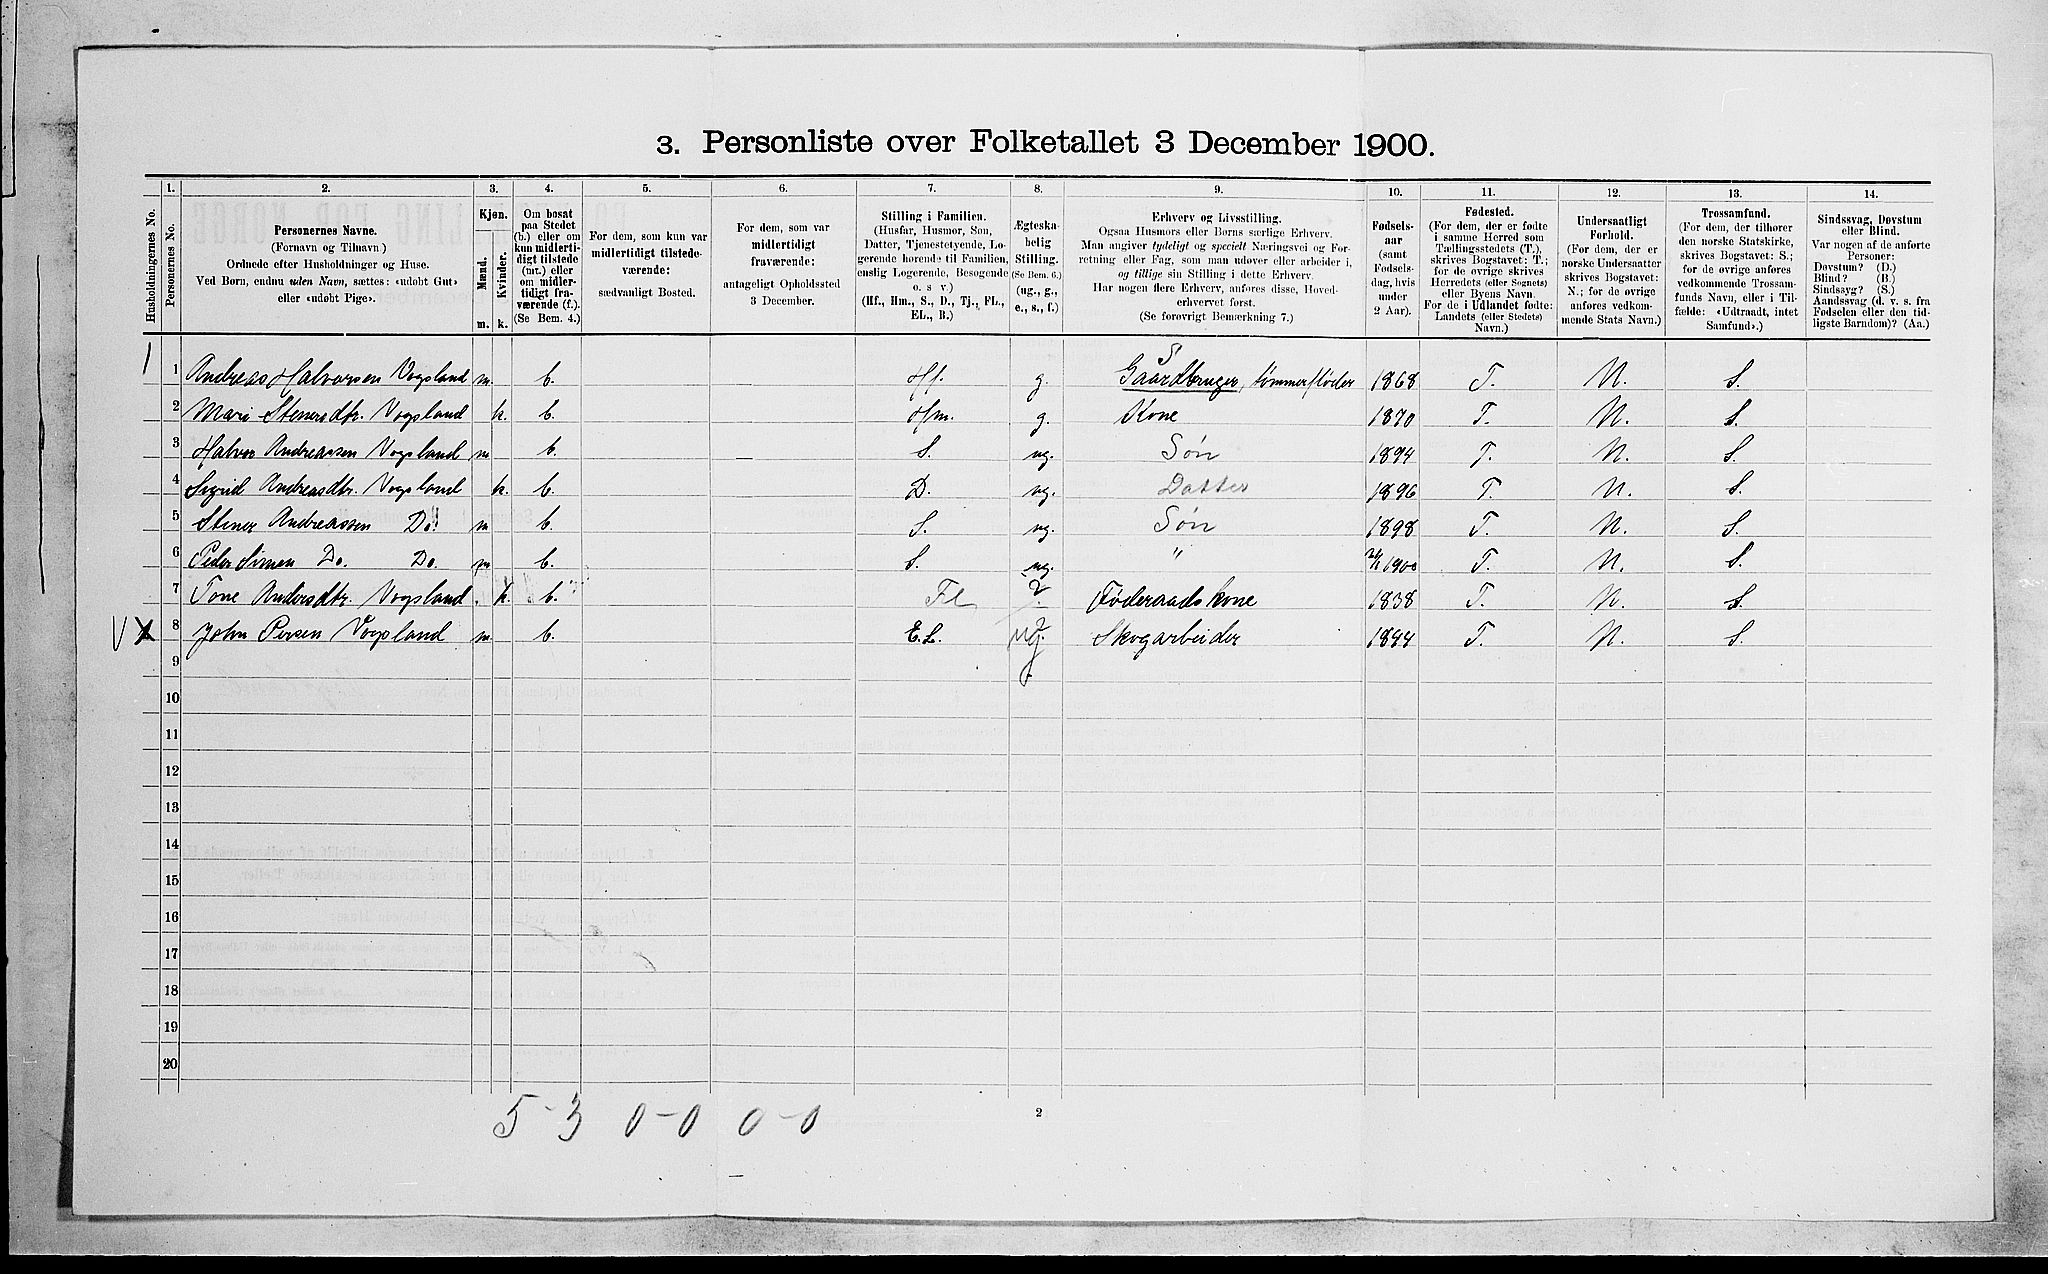 3. Personliste over Folketallet 3 December 1900.
Husholdningernes No.
1.
Personernes No.
2.
Personernes Navne.
(Fornavn og Tilnavn.)
Ordnede efter Husholdninger og Huse.
Ved Børn, endnu uden Navn, sættes: «udøbt Gut»
eller «udøbt Pige».
3.
Kjøn.
Mænd.
Kvinder.
m.
k.
4.
Om bosat
paa Stedet
(b.) eller om
kun midlerti-
digt tilstede
(mt.) eller
om midler-
tidigt fra-
værende (f.).
(Se Bem. 4.)
5.
For dem, som kun var
midlertidigt tilstede-
værende:
sædvanligt Bosted.
6.
For dem, som var
midlertidigt
fraværende:
antageligt Opholdssted
3 December.
7.
Stilling i Familien.
(Husfar, Husmor, Søn,
Datter, Tjenestetyende, Lo-
gerende hørende til Familien,
enslig Logerende, Besøgende
o. s. v.)
(Hf., Hm., S., D., Tj., FL.,
EL., B.)
8.
Ægteska-
belig
Stilling.
(Se Bem. 6.)
(ug., g.,
e., s., f.)
9.
Erhverv og Livsstilling.
Ogsaa Husmors eller Børns særlige Erhverv.
Man angiver tydeligt og specielt Næringsvei og For-
retning eller Fag, som man udøver eller arbeider i,
og tillige sin Stilling i dette Erhverv.
Har nogen flere Erhverv, anføres disse, Hoved-
erhvervet først.
(Se forøvrigt Bemærkning 7.)
10.
Fødsels-
aar
(samt
Fødsels-
dag, hvis
under
2 Aar).
11.
Fødested.
(For dem, der er fødte
i samme Herred som
Tællingsstedets (T.),
skrives Bogstavet: T.;
for de øvrige skrives
Herredets (eller Sognets)
eller Byens Navn.
For de i Udlandet fødte:
Landets (eller Stedets)
Navn.)
12.
Undersaatligt
Forhold.
(For dem, der er
norske Undersaatter
skrives Bogstavet:
N.; for de øvrige
anføres vedkom-
mende Stats Navn.)
13.
Trossamfund.
(For dem, der tilhører
den norske Statskirke,
skrives Bogstavet: S.;
for de øvrige anføres
vedkommende Trossam-
funds Navn, eller i Til-
fælde: «Udtraadt, intet
Samfund».)
14.
Sindssvag, Døvstum
eller Blind.
Var nogen af de anførte
Personer:
Døvstum? (D.)
Blind? (B.)
Sindssyg? (S.)
Aandssvag (d. v. s. fra
Fødselen eller den tid-
ligste Barndom)? (Aa.)
S
1 1 Andreas Halvorsen Vogsland m. b. Hf. g. Gaardbruger, tømmerfløder 1868 T. N. S.
2 Mari Stenersdtr. Vogsland k. b. Hm. g. Kone 1870 T. N. S.
3 Halvor Andreassen Vogsland m b. S. ug. Søn 1894 T. N. S.
4 Sigrid Andreasdtr. Vogsland k. b. D. ug. Datter 1896 T. N. S.
5 Stener Andreassen Do. m b. S. ug. Søn 1898 T. N. S.
6 Peder Simen Do. Do. m b. S. ug. " 1900 T. N. S.
7 Tone Andersdtr. Vogsland k. b. FL Føderaadskone 1838 T. N. S.
8 John Persen Vogsland m b. E.L. Skogarbeider 1844 T. N. S.
9
10
11
12
13
14
15
16
17
18
19
20
5-3 0-0 0-0
2